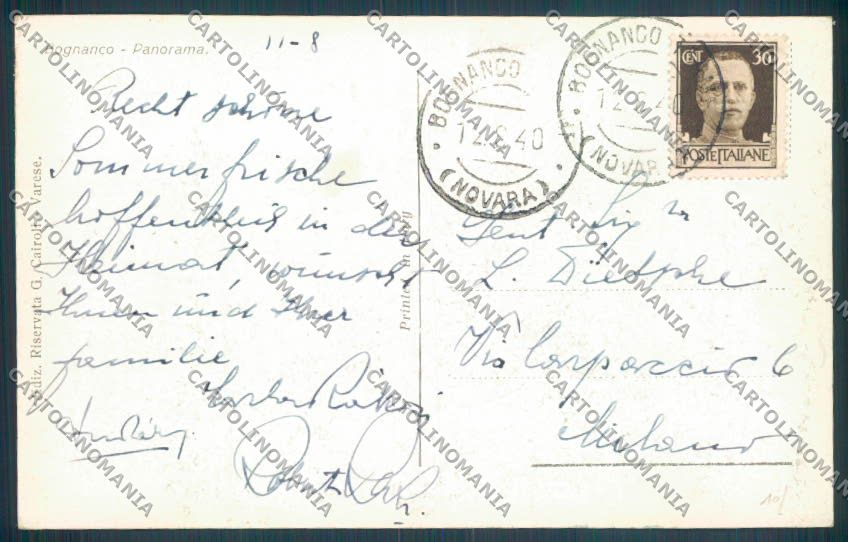 Bognanco - Panorama.
11-8
Recht schöne
Sommerfrische
hoffentlich in der
Heimat, wünscht
Ihnen und Ihrer
familie
Ediz. Riservata G. Cairoli - Varese.
Printed in Italy
BOGNANCO
12.8.40
(NOVARA)
BOGNANCO
12.8.40
(NOVARA)
CENT 30
POSTE ITALIANE
Gent
L. Dietsche
Via Carpaccio 6
Milano
CARTOLINOMANIA